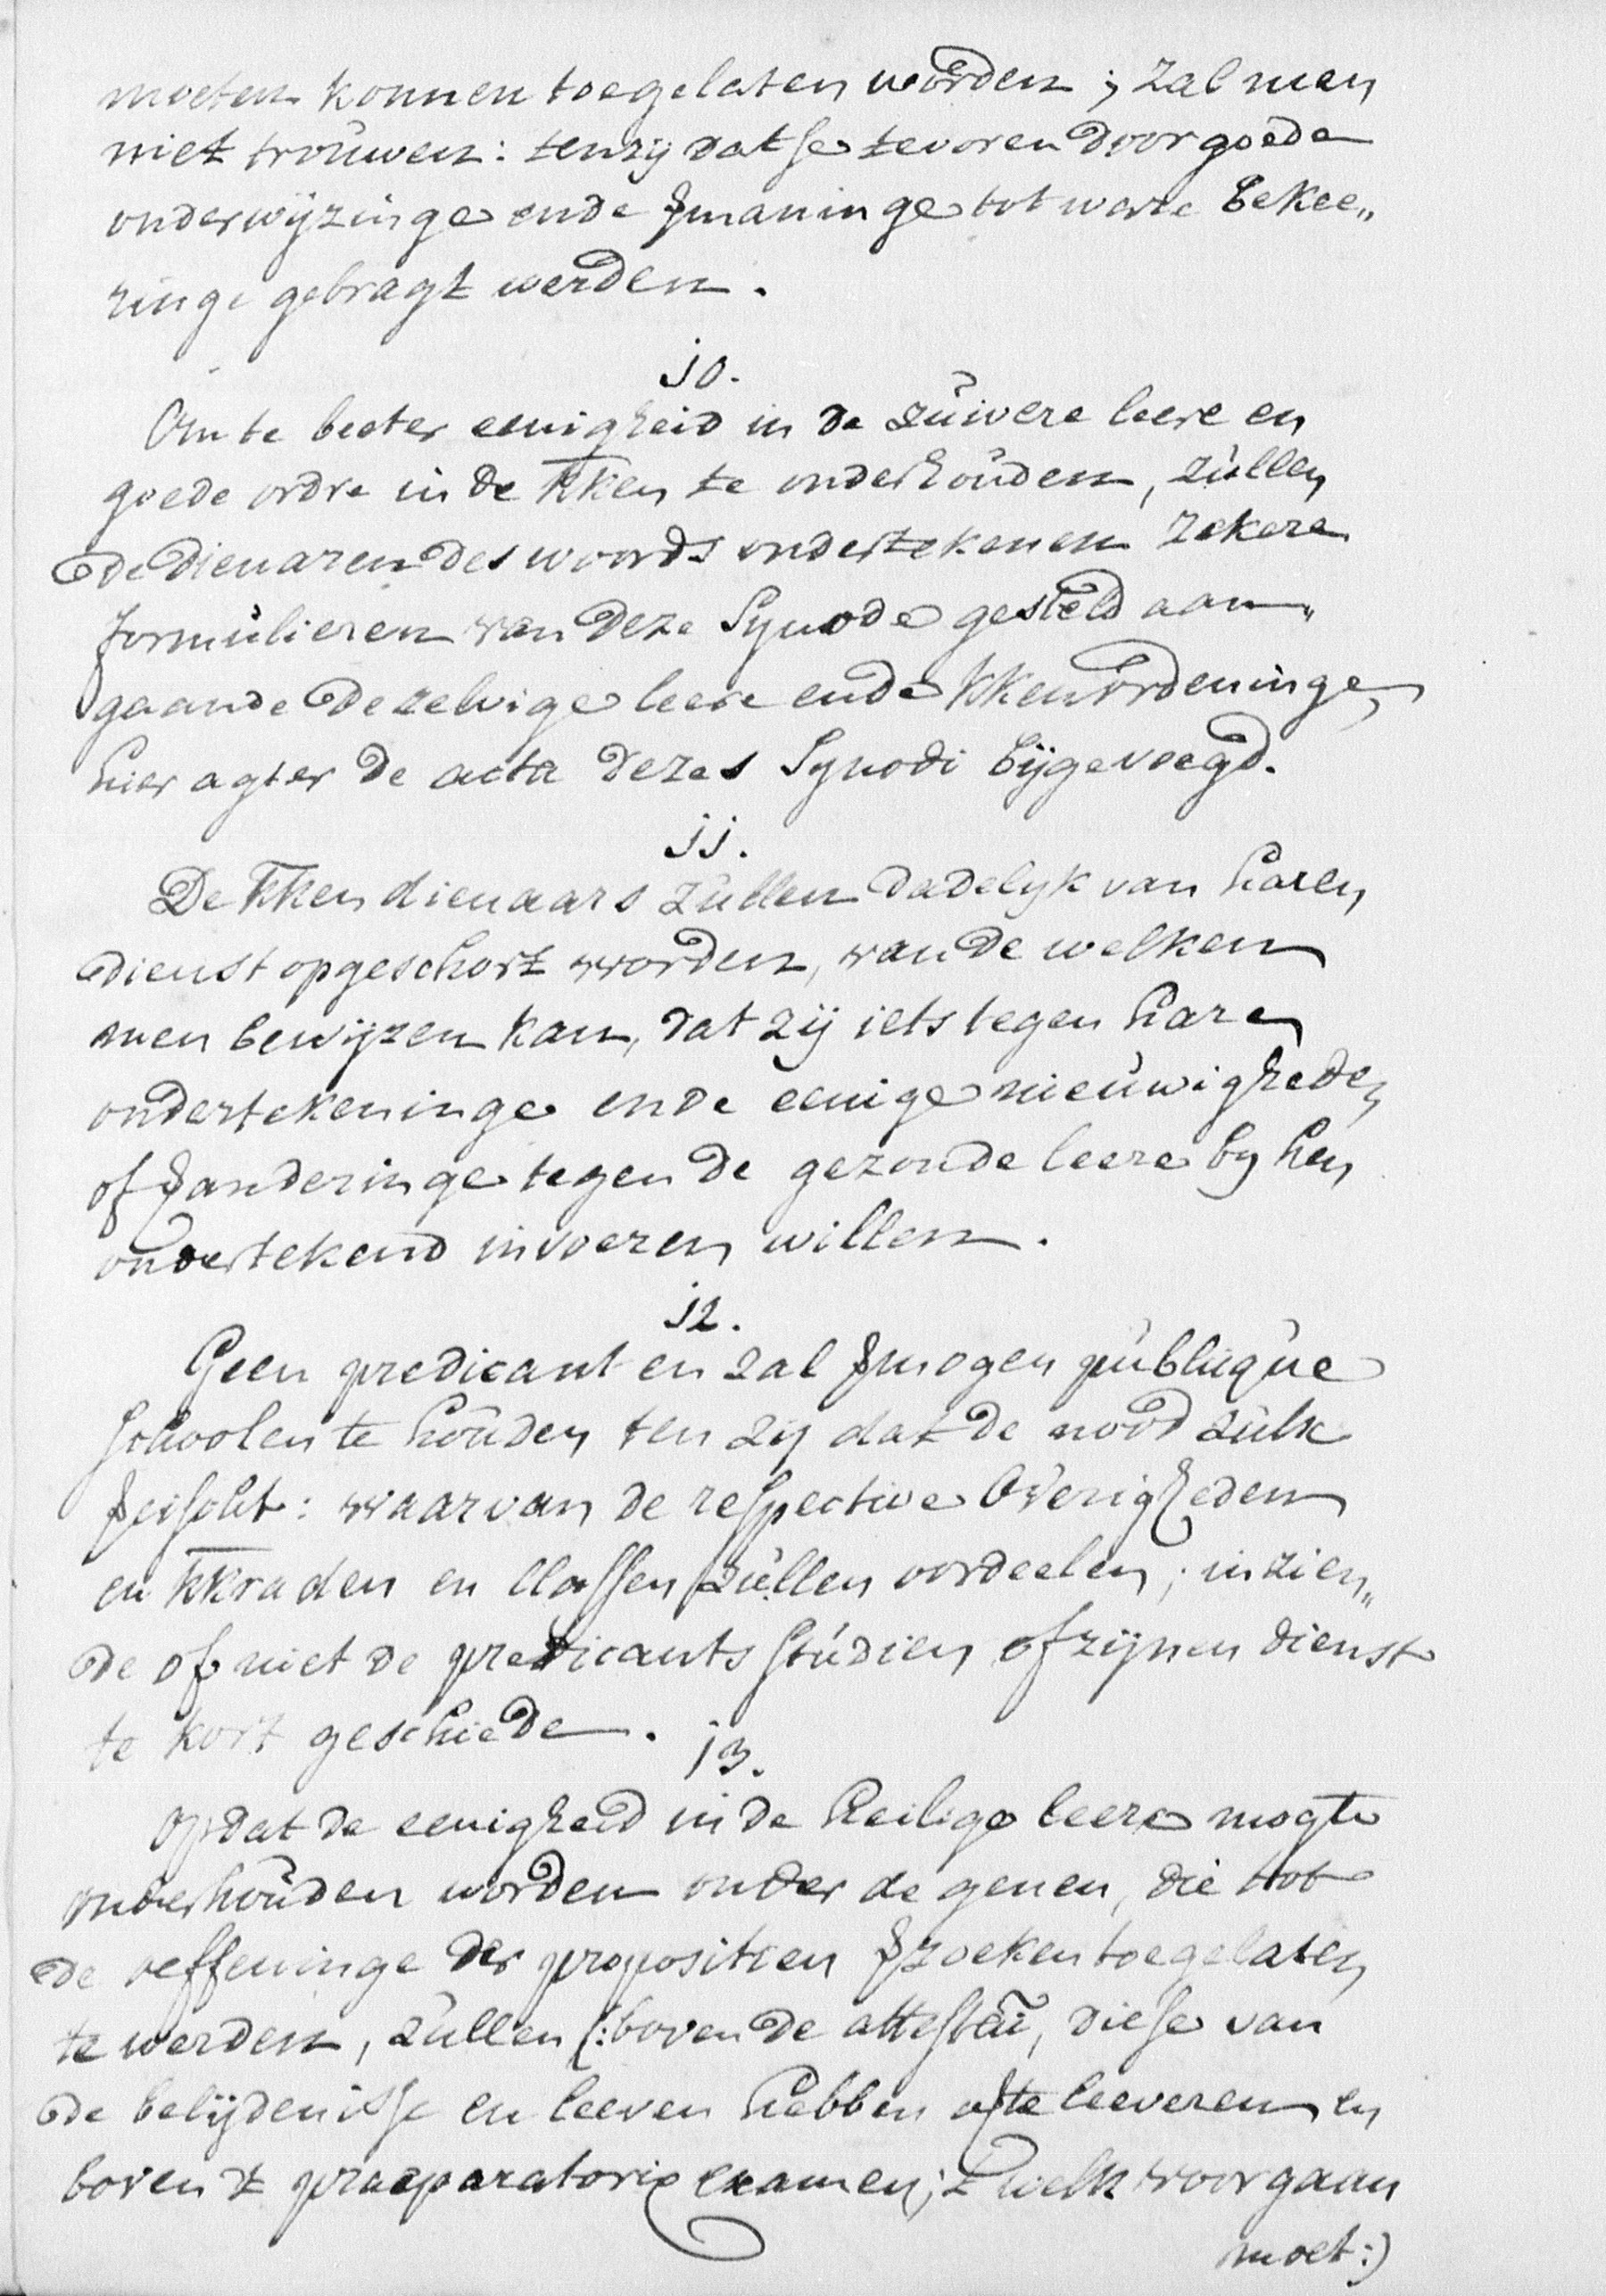 moeten konnen toegelaten worden; zal men
niet trouwen: tenzij dat se tevoren door goede
onderwijzinge ende vermaninge tot ware bekee„
ringe gebragt werden.
10.
Om te beeter eenigheid in de zuivere leere en
goede ordre in de kken te onderhouden, zullen
de dienaren des woords ondertekenen zekere
formulieren van deze Synode gesteld aan„
gaande dezelvige leere ende kkenordeninge,
hier agter de acta dezes Synodi bijgevoegd.
11.
De kken dienaars zullen dadelyk van haren
dienst opgeschort worden, van de welken
men bewijzen kan, dat zij iets tegen hare
ondertekeninge ende eenige nieuwigheden
of veranderinge tegen de gezonde leere by hen
ondertekend invoeren willen.
12.
Geen predicant en zal vermogen publique
schoolen te houden ten zij dat de nood zulk
vereischt: waarvan de respective Overigheden
en kkraden en Classen zullen oordeelen; inzien„
de of niet de predicants studien of zijnen dienst
te kort geschiede.
13.
Opdat de eenigheid in de heilige leere mogte
onderhouden worden onder de genen, die tot
de oeffeninge der propositien verzoeken toegelaten
te werden, zullen (: boven de attestati, die se van
de belijdenisse en leeven hebben over te leeveren en
boven 't praeparatorie examen; 't welk voorgaan
moet:)